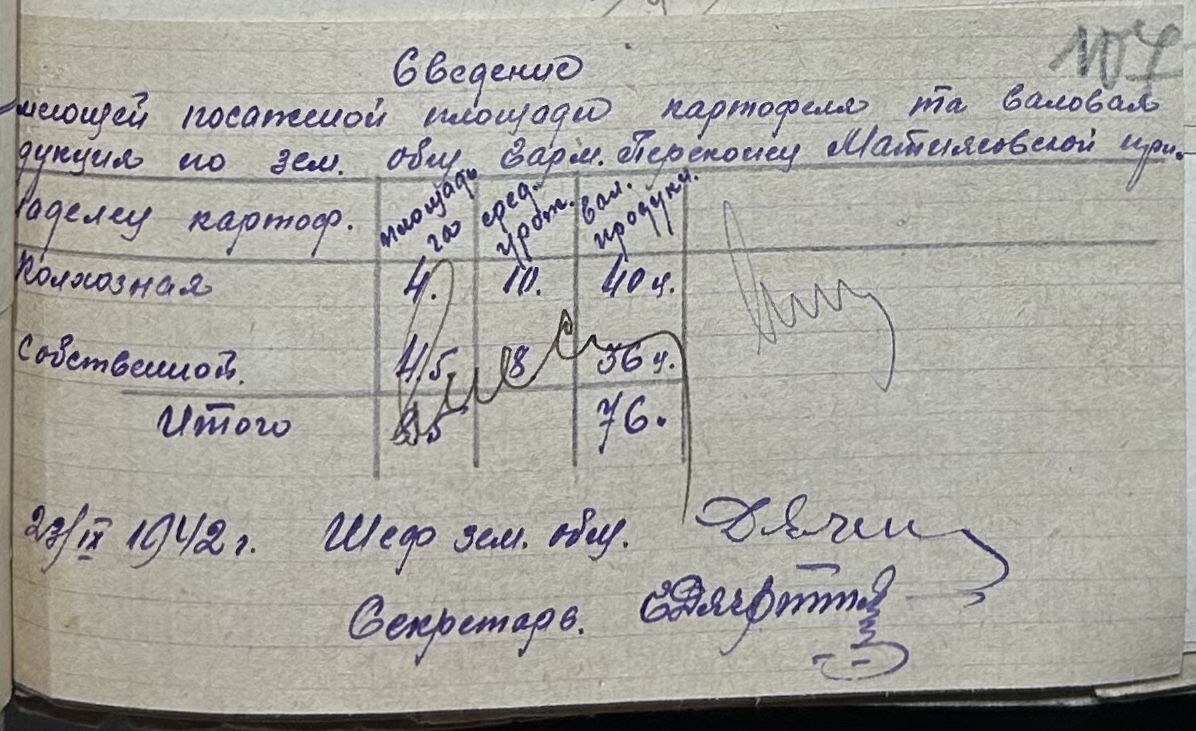 107
Сведение
меющей посаженой площади картофеля та валовая
дукция по зем. общ. Зарм. Перекопец Матиясовской при.
картоф. площадь га сред. урож. вал. продукц.
Колхозная 4. 10. 40 ц.
Собственной. 4,5. 8 36 ц.
Итого 8,5 76.
23/IX 1942 г. Шеф зем. общ.
Секретарь.